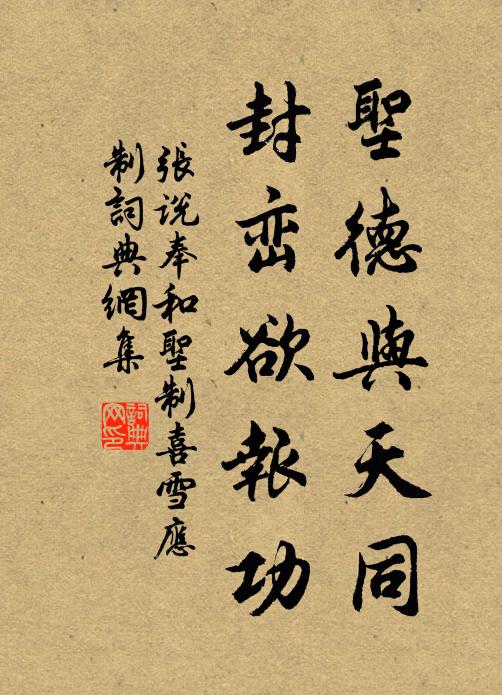 聖德與天同
封峦欲報功
張说奉和聖制喜雪應
制詞典網集
詞典
网印